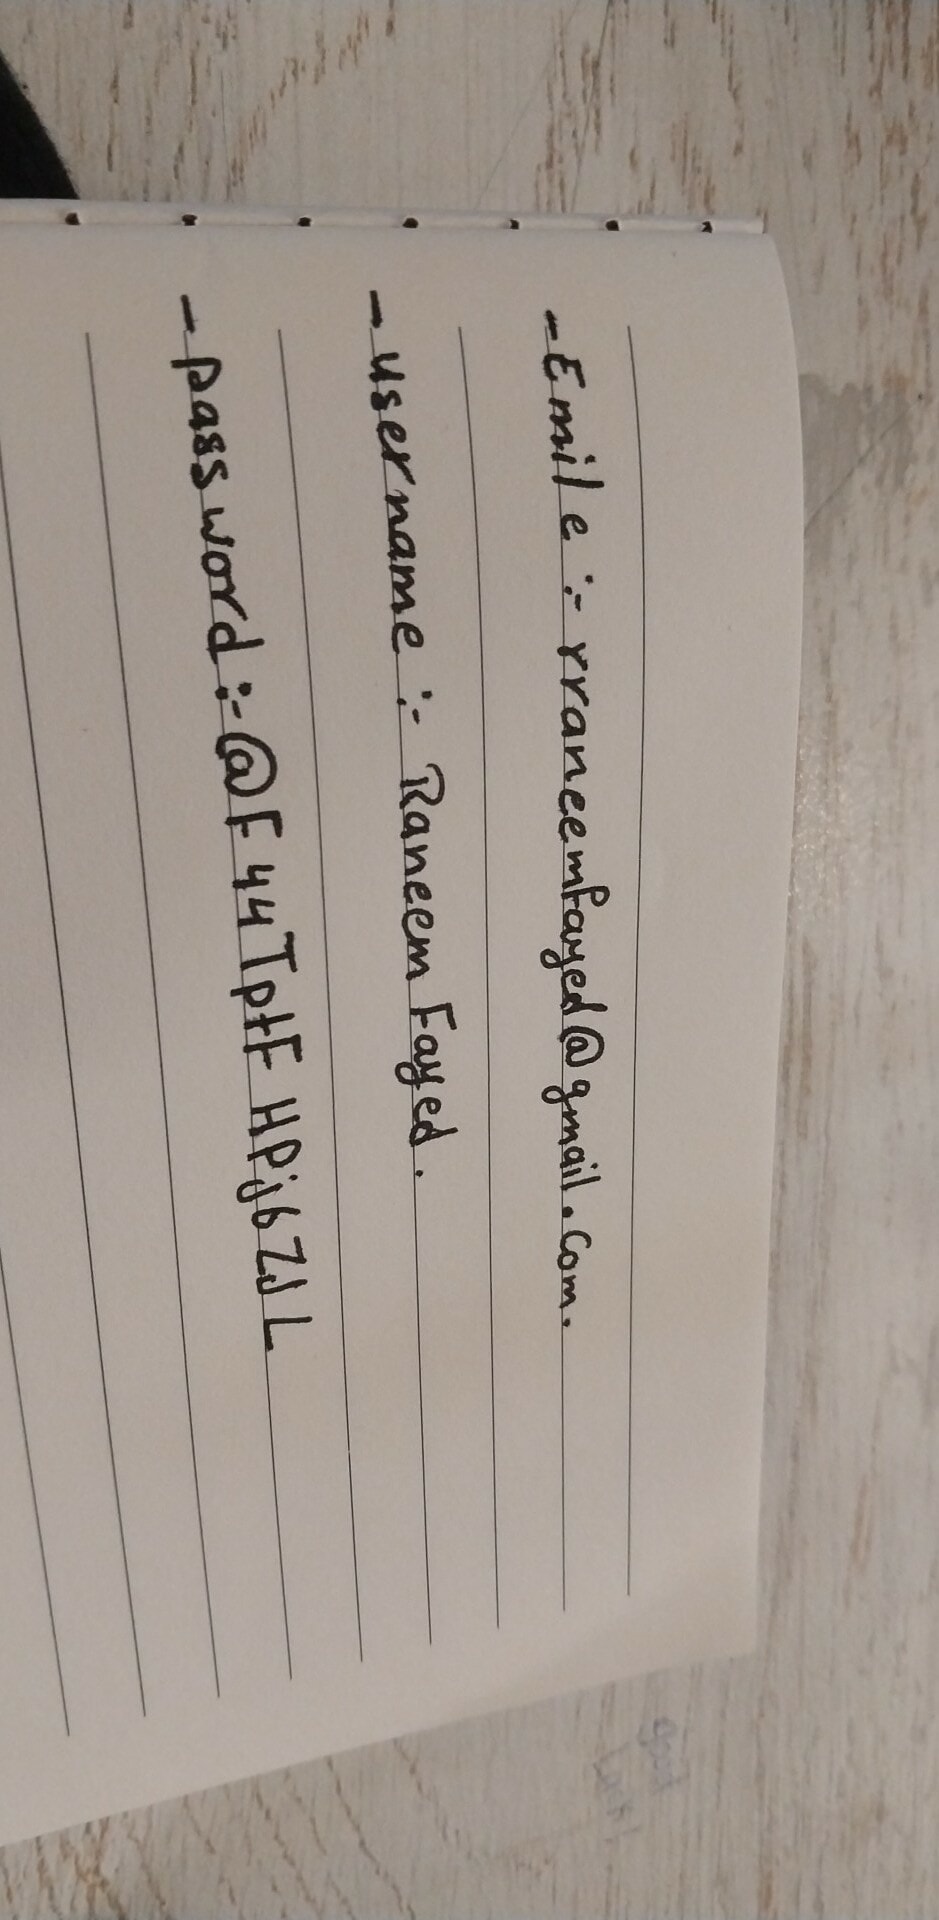 - Emile :- rraneemfayed@gmail.com.
- username :- Raneem Fayed.
- password :- @F44TptFHPj6ZJL
good luck!